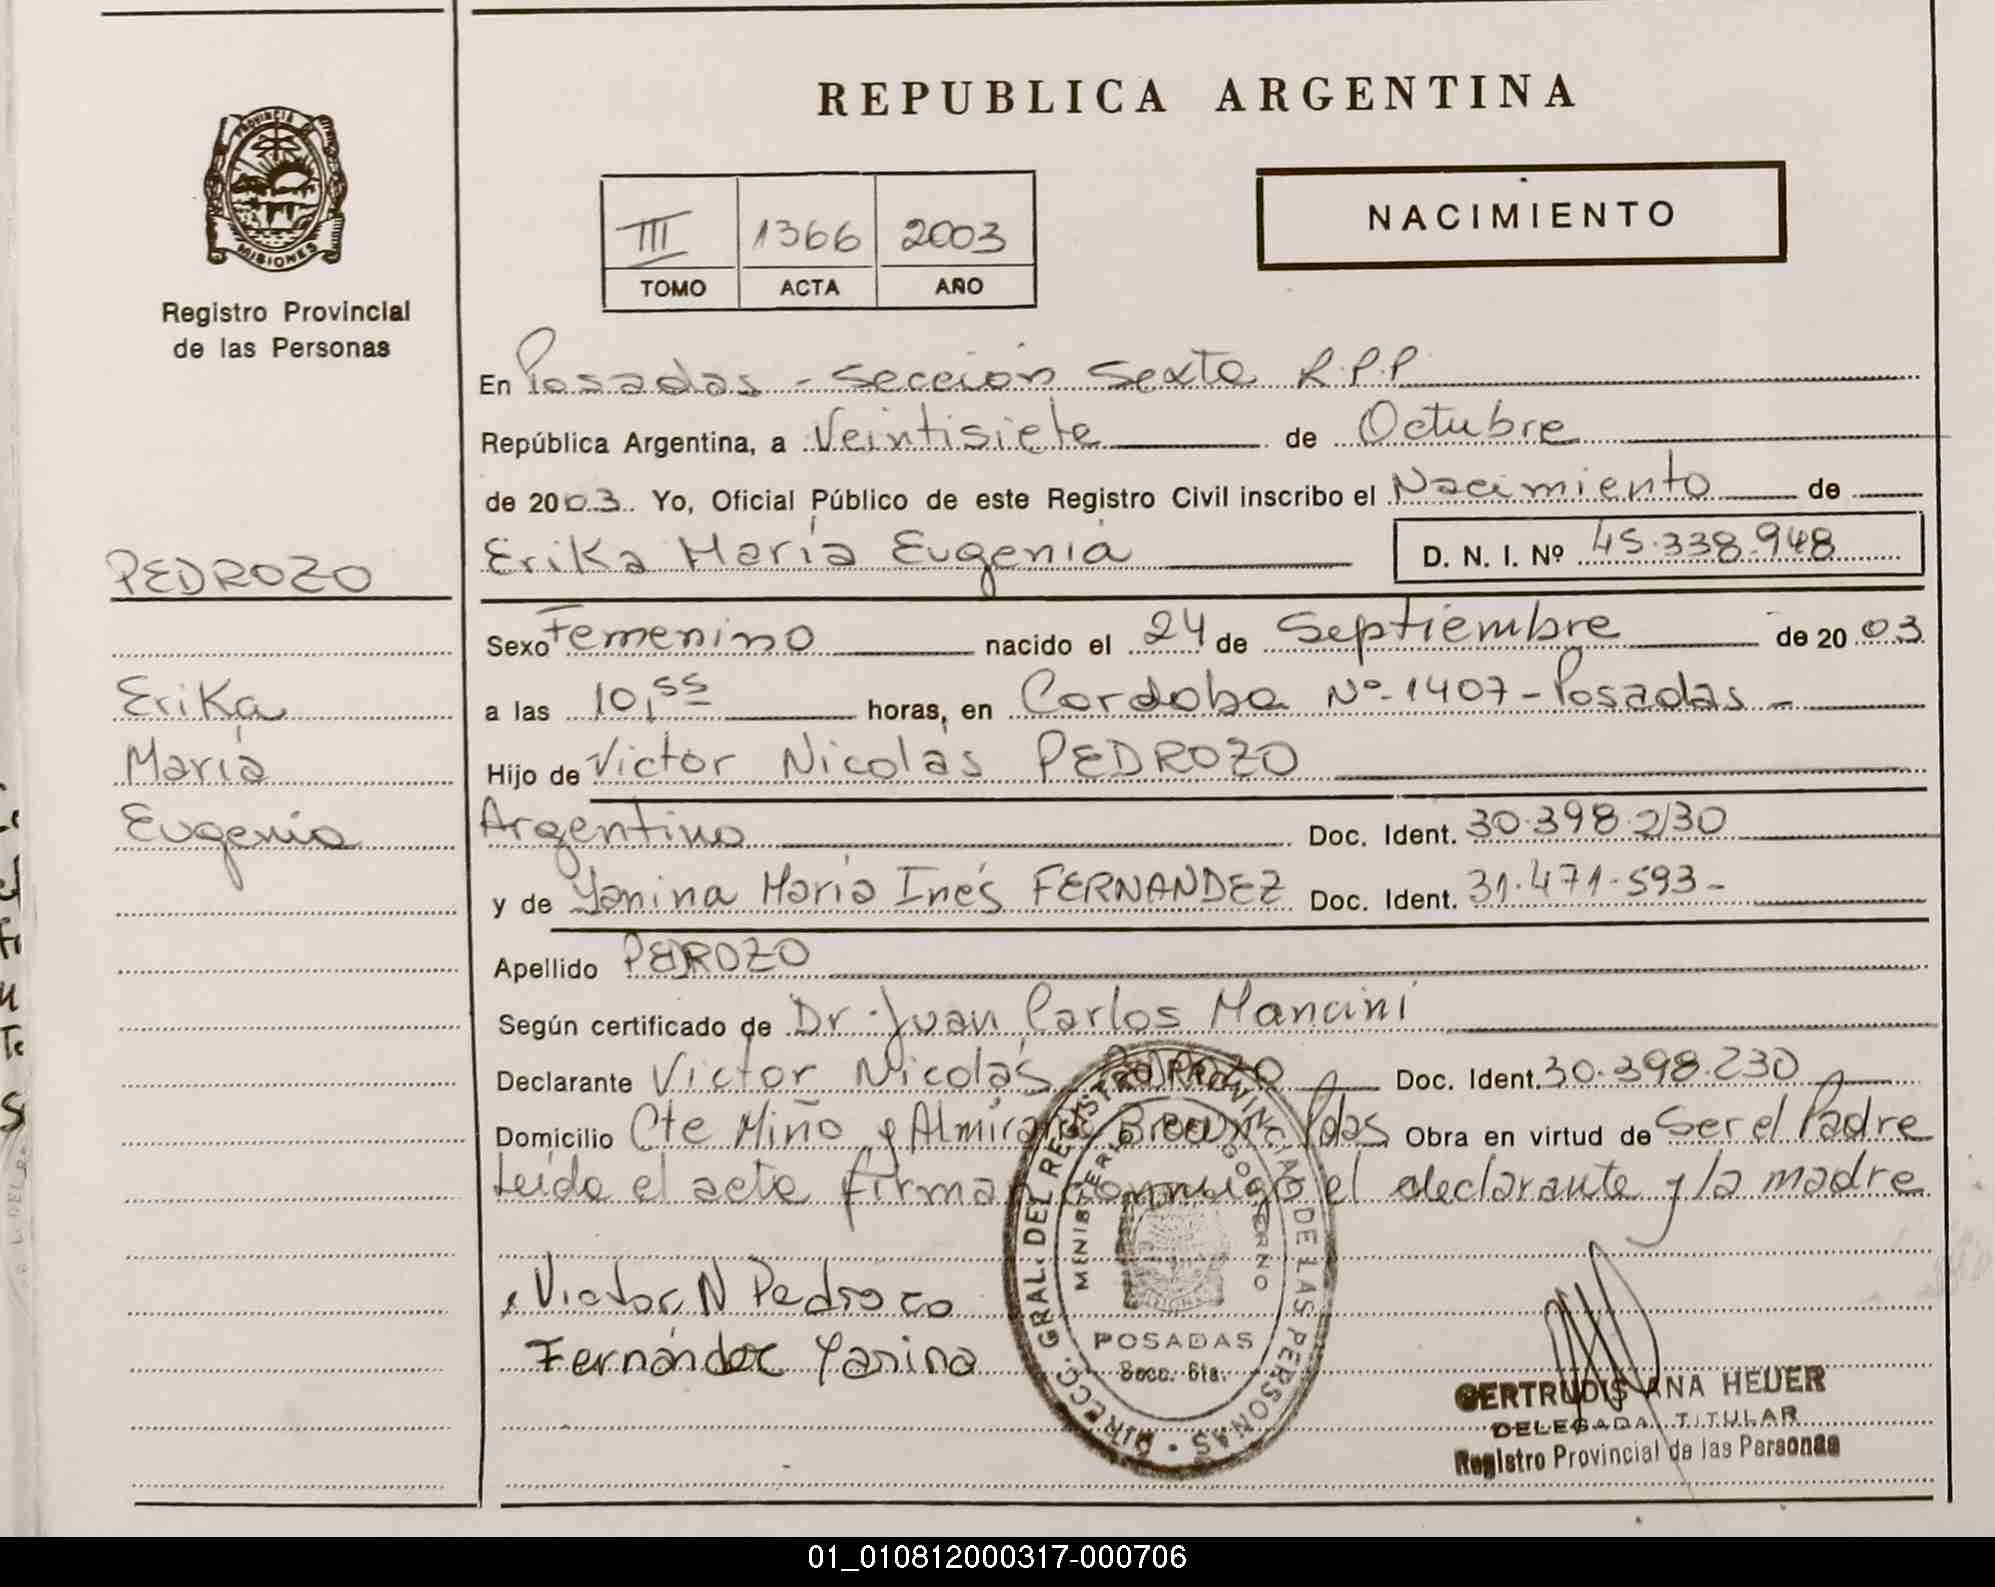 REPUBLICA ARGENTINA
PROVINCIA DE MISIONES
Registro Provincial
de las Personas
III 1366 2003
TOMO ACTA AÑO
NACIMIENTO
En Posadas - Sección Sexta R.P.P
República Argentina, a Veintisiete de Octubre
de 2003. Yo, Oficial Público de este Registro Civil inscribo el Nacimiento de
Erika María Eugenia D. N. I. Nº 45.338.948
PEDROZO
Erika
María
Eugenia
Sexo Femenino nacido el 24 de Septiembre de 2003
a las 10,55 horas, en Cordoba Nº 1407 - Posadas -
Hijo de Victor Nicolás PEDROZO
Argentino Doc. Ident. 30.398.230
y de Yanina María Inés FERNANDEZ Doc. Ident. 31.471.593 -
Apellido PEDROZO
Según certificado de Dr. Juan Carlos Mancini
Declarante Victor Nicolás PEDROZO Doc. Ident. 30.398.230
Domicilio Cte Miño y Almirante Brown Pdas Obra en virtud de Ser el Padre
Leída el acta firman conmigo el declarante y la madre
Victor N Pedrozo
Fernández Yanina
DIRECC. GRAL. DEL REGISTRO PROVINCIAL DE LAS PERSONAS
MINISTERIO GOBIERNO
POSADAS
Secc. 6ta.
GERTRUDIS ANA HEUER
DELEGADA TITULAR
Registro Provincial de las Personas
01_010812000317-000706